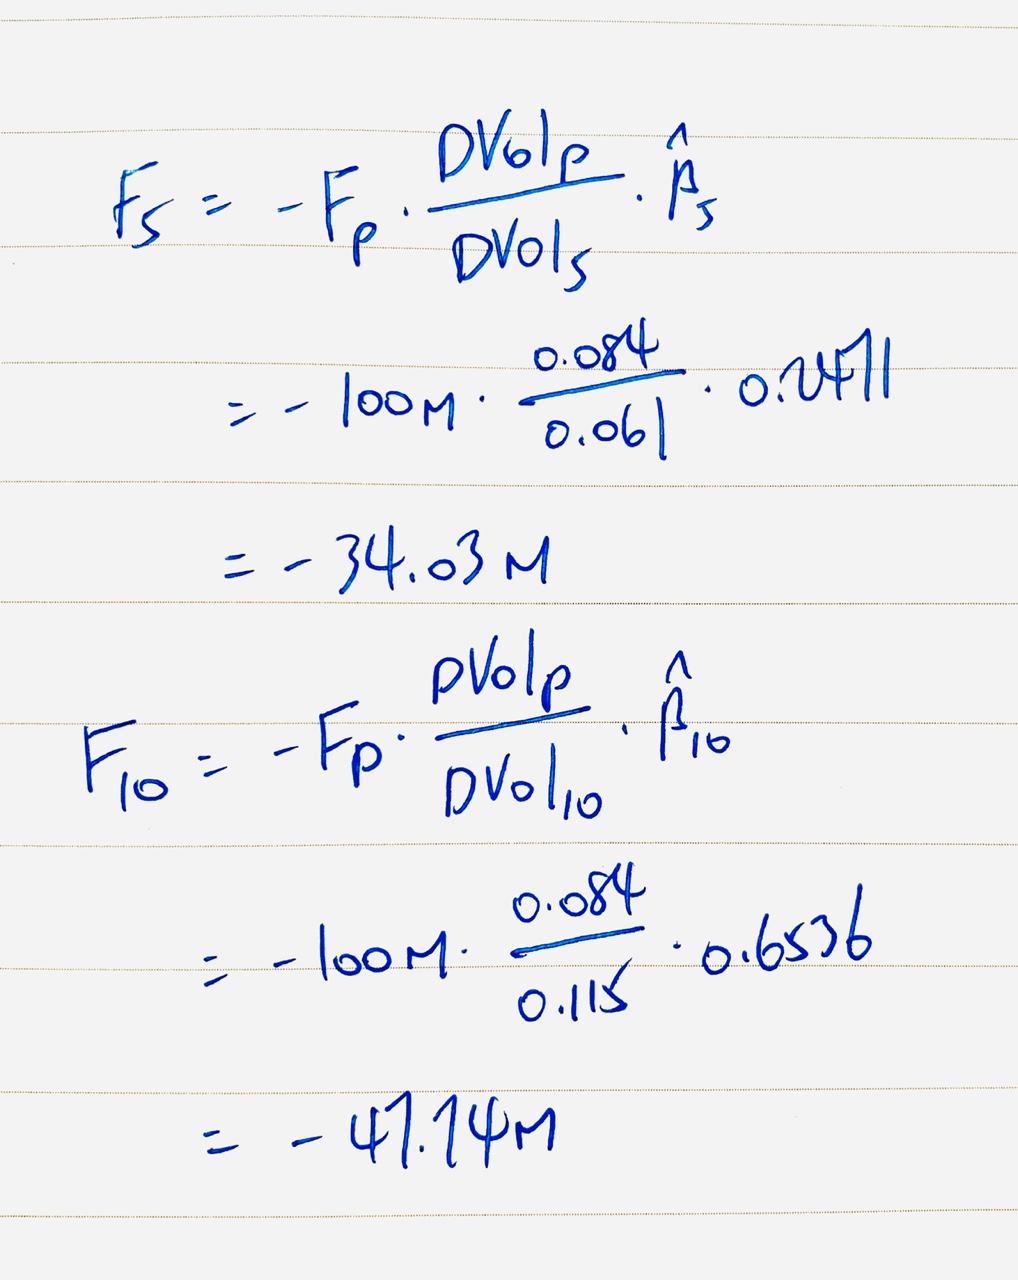 F₅ = -Fₚ · DVolₚ / DVol₅ · β̂₅
= - 100M · 0.084 / 0.061 · 0.2471
= - 34.03M
F₁₀ = -Fₚ · DVolₚ / DVol₁₀ · β̂₁₀
= - 100M · 0.084 / 0.115 · 0.6536
= - 47.74M